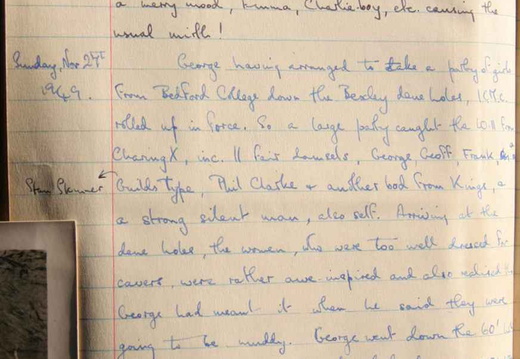 a merry mood, Emma, Charlie-boy, etc. causing the
usual mirth!
Sunday, Nov 27th George having arranged to take a party of girls
1949. from Bedford College down the Bexley dene holes,
rolled up in force. So a large party caught the 10.11 from
Charing X, inc. 11 fair damsels, George, Geoff, Frank,
Stan Skinner Guilds type, Phil Clarke & another bod from Kings, a
a strong silent man, also self. Arriving at the
dene holes, the women, who were too well dressed for
cavers, were rather awe-inspired and also realised
George had meant it when he said they were
going to be muddy. George went down the 60'